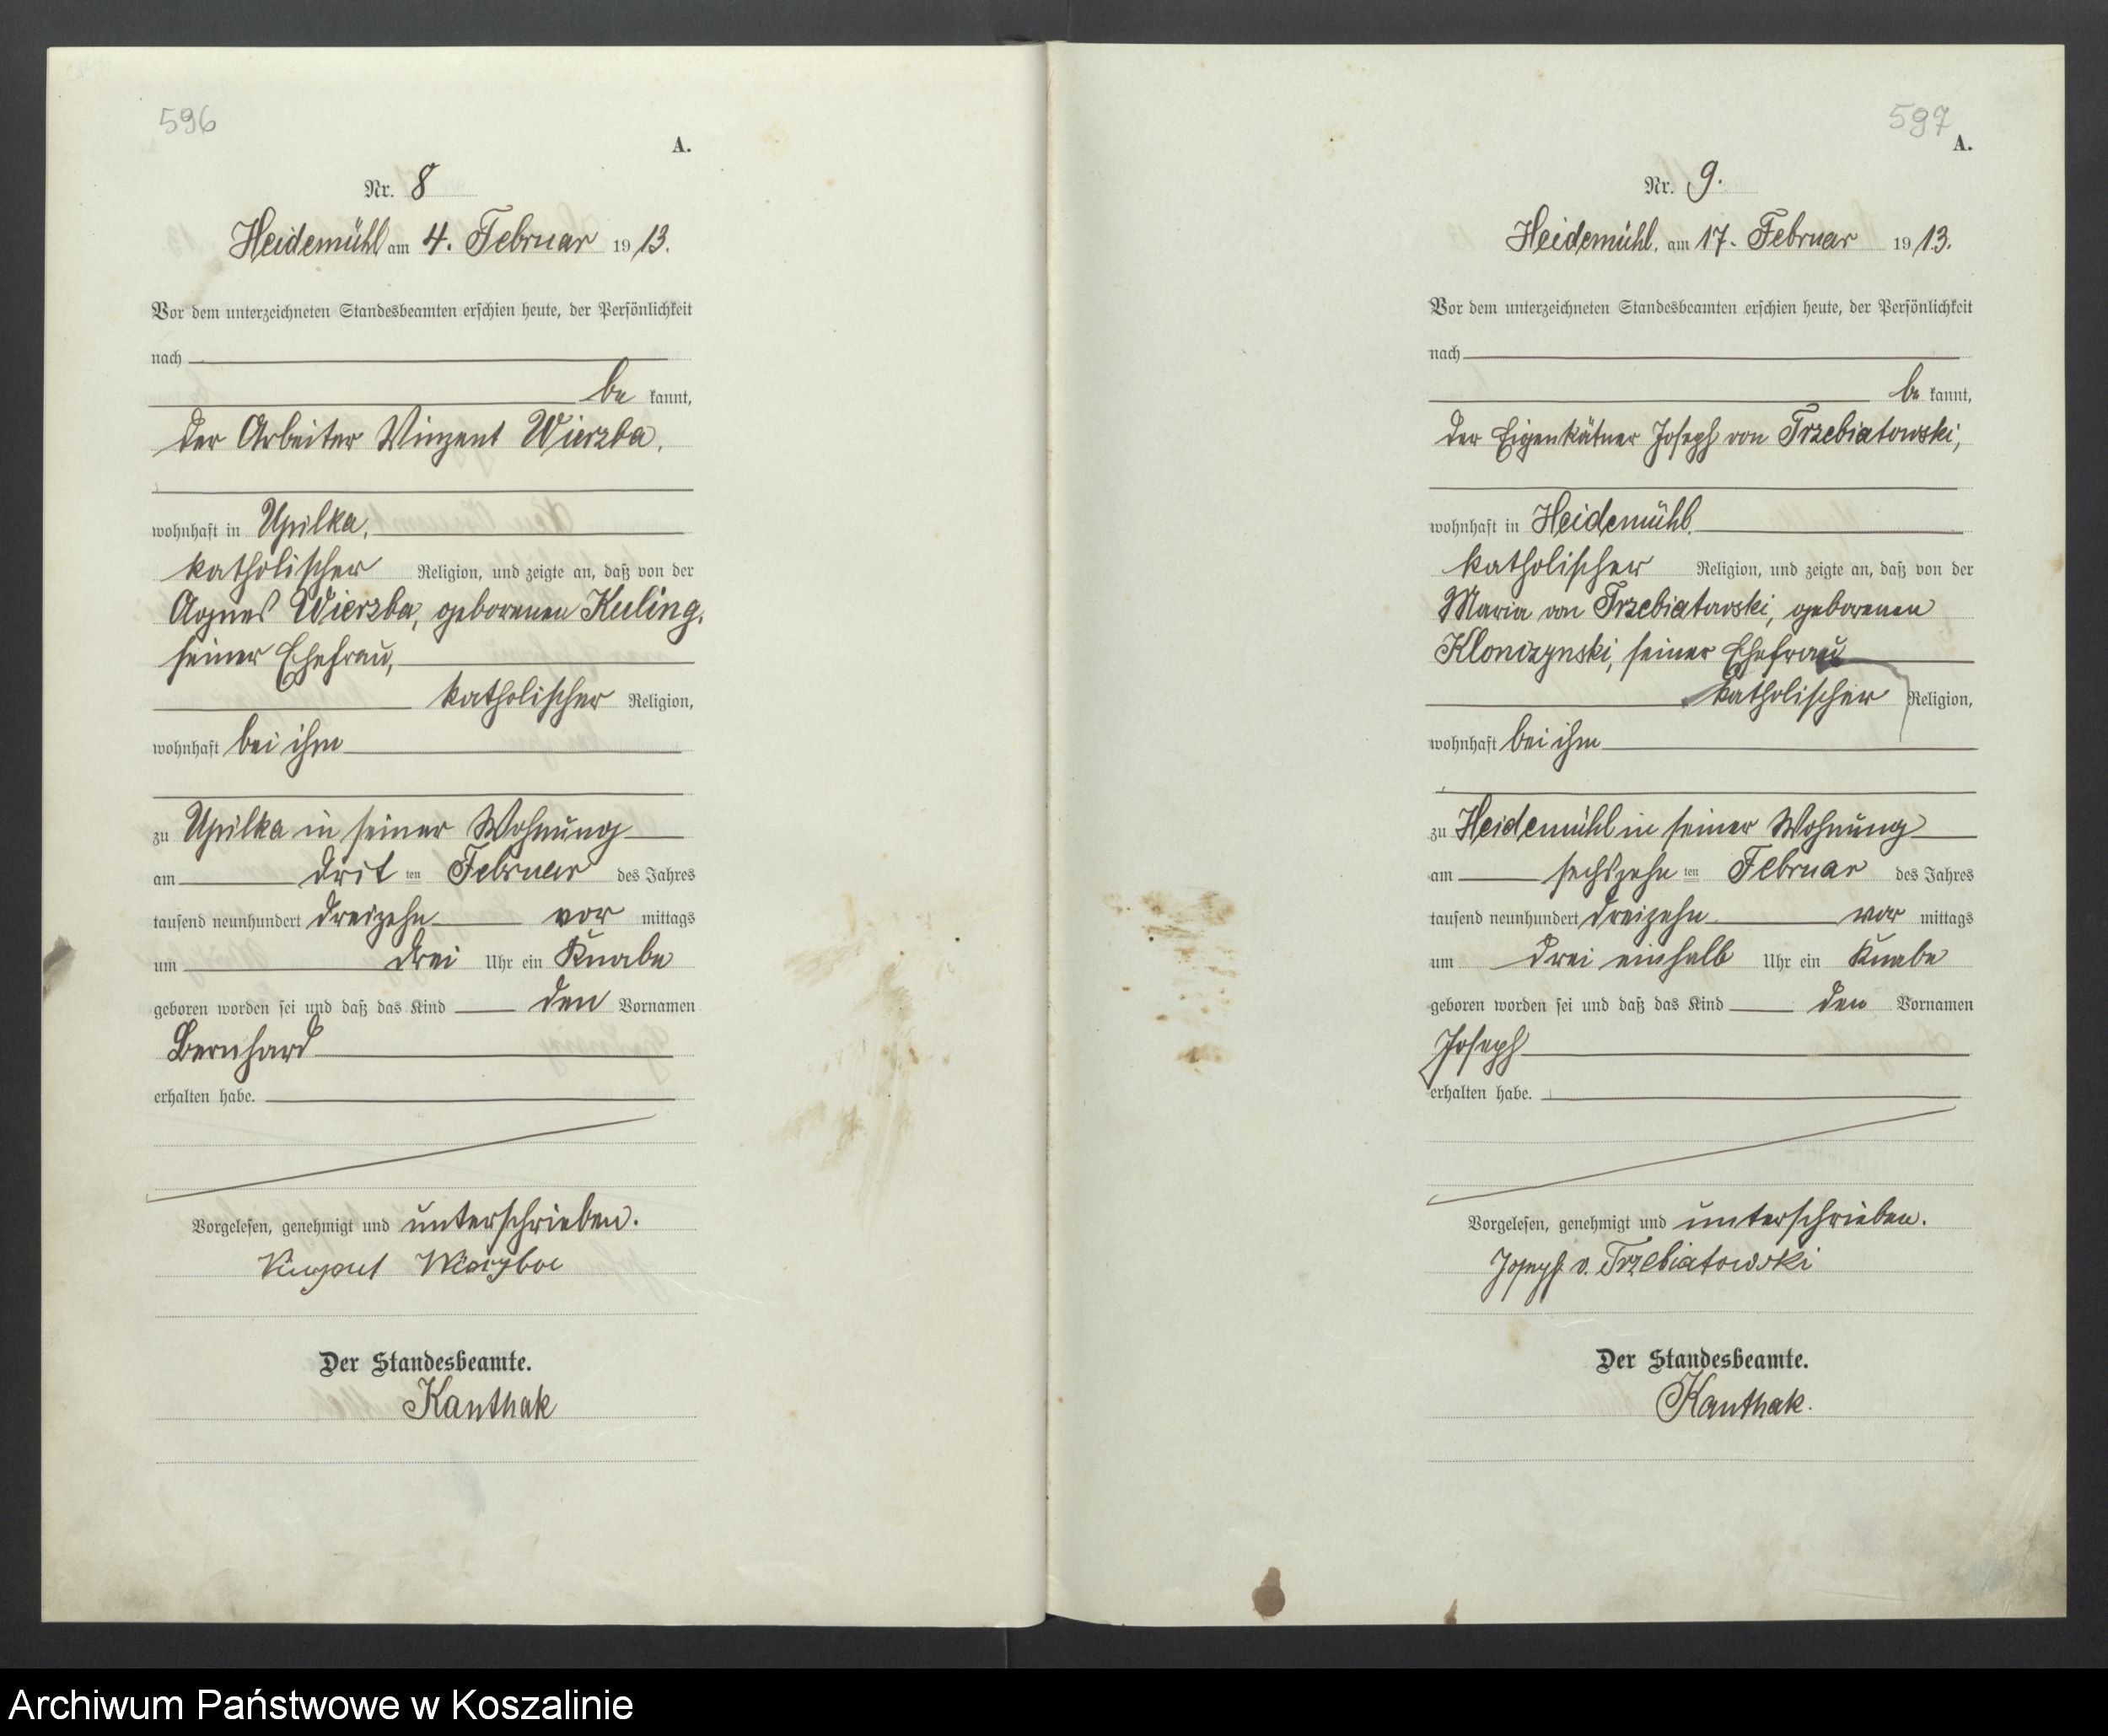 596
A.
Nr. 8
Heidemühl am 4. Februar 1913.
Vor dem unterzeichneten Standesbeamten erschien heute, der Persönlichkeit
nach
be kannt,
der Arbeiter Vinzent Wierzba,
wohnhaft in Upilka,
katholischer Religion, und zeigte an, daß von der
Agnes Wierzba, geborenen Kuling,
seiner Ehefrau,
katholischer Religion,
wohnhaft bei ihm
zu Upilka in seiner Wohnung
am drit ten Februar des Jahres
tausend neunhundert dreizehn vor mittags
um drei Uhr ein Knabe
geboren worden sei und daß das Kind den Vornamen
Bernhard
erhalten habe.
Vorgelesen, genehmigt und unterschrieben.
Der Standesbeamte.
Kanthak
597
A.
Nr. 9.
Heidemühl, am 17. Februar 1913.
Vor dem unterzeichneten Standesbeamten erschien heute, der Persönlichkeit
nach
be kannt,
der Eigenkätner Joseph von Trzebiatowski,
wohnhaft in Heidemühl,
katholischer Religion, und zeigte an, daß von der
Maria von Trzebiatowski, geborenen
Klonczynski, seiner Ehefrau
katholischer Religion,
wohnhaft bei ihm
zu Heidemühl in seiner Wohnung
am sechszehn ten Februar des Jahres
tausend neunhundert dreizehn vor mittags
um drei einhalb Uhr ein Knabe
geboren worden sei und daß das Kind den Vornamen
Joseph
erhalten habe.
Vorgelesen, genehmigt und unterschrieben.
Joseph v. Trzebiatowski
Der Standesbeamte.
Kanthak.
Archiwum Państwowe w Koszalinie